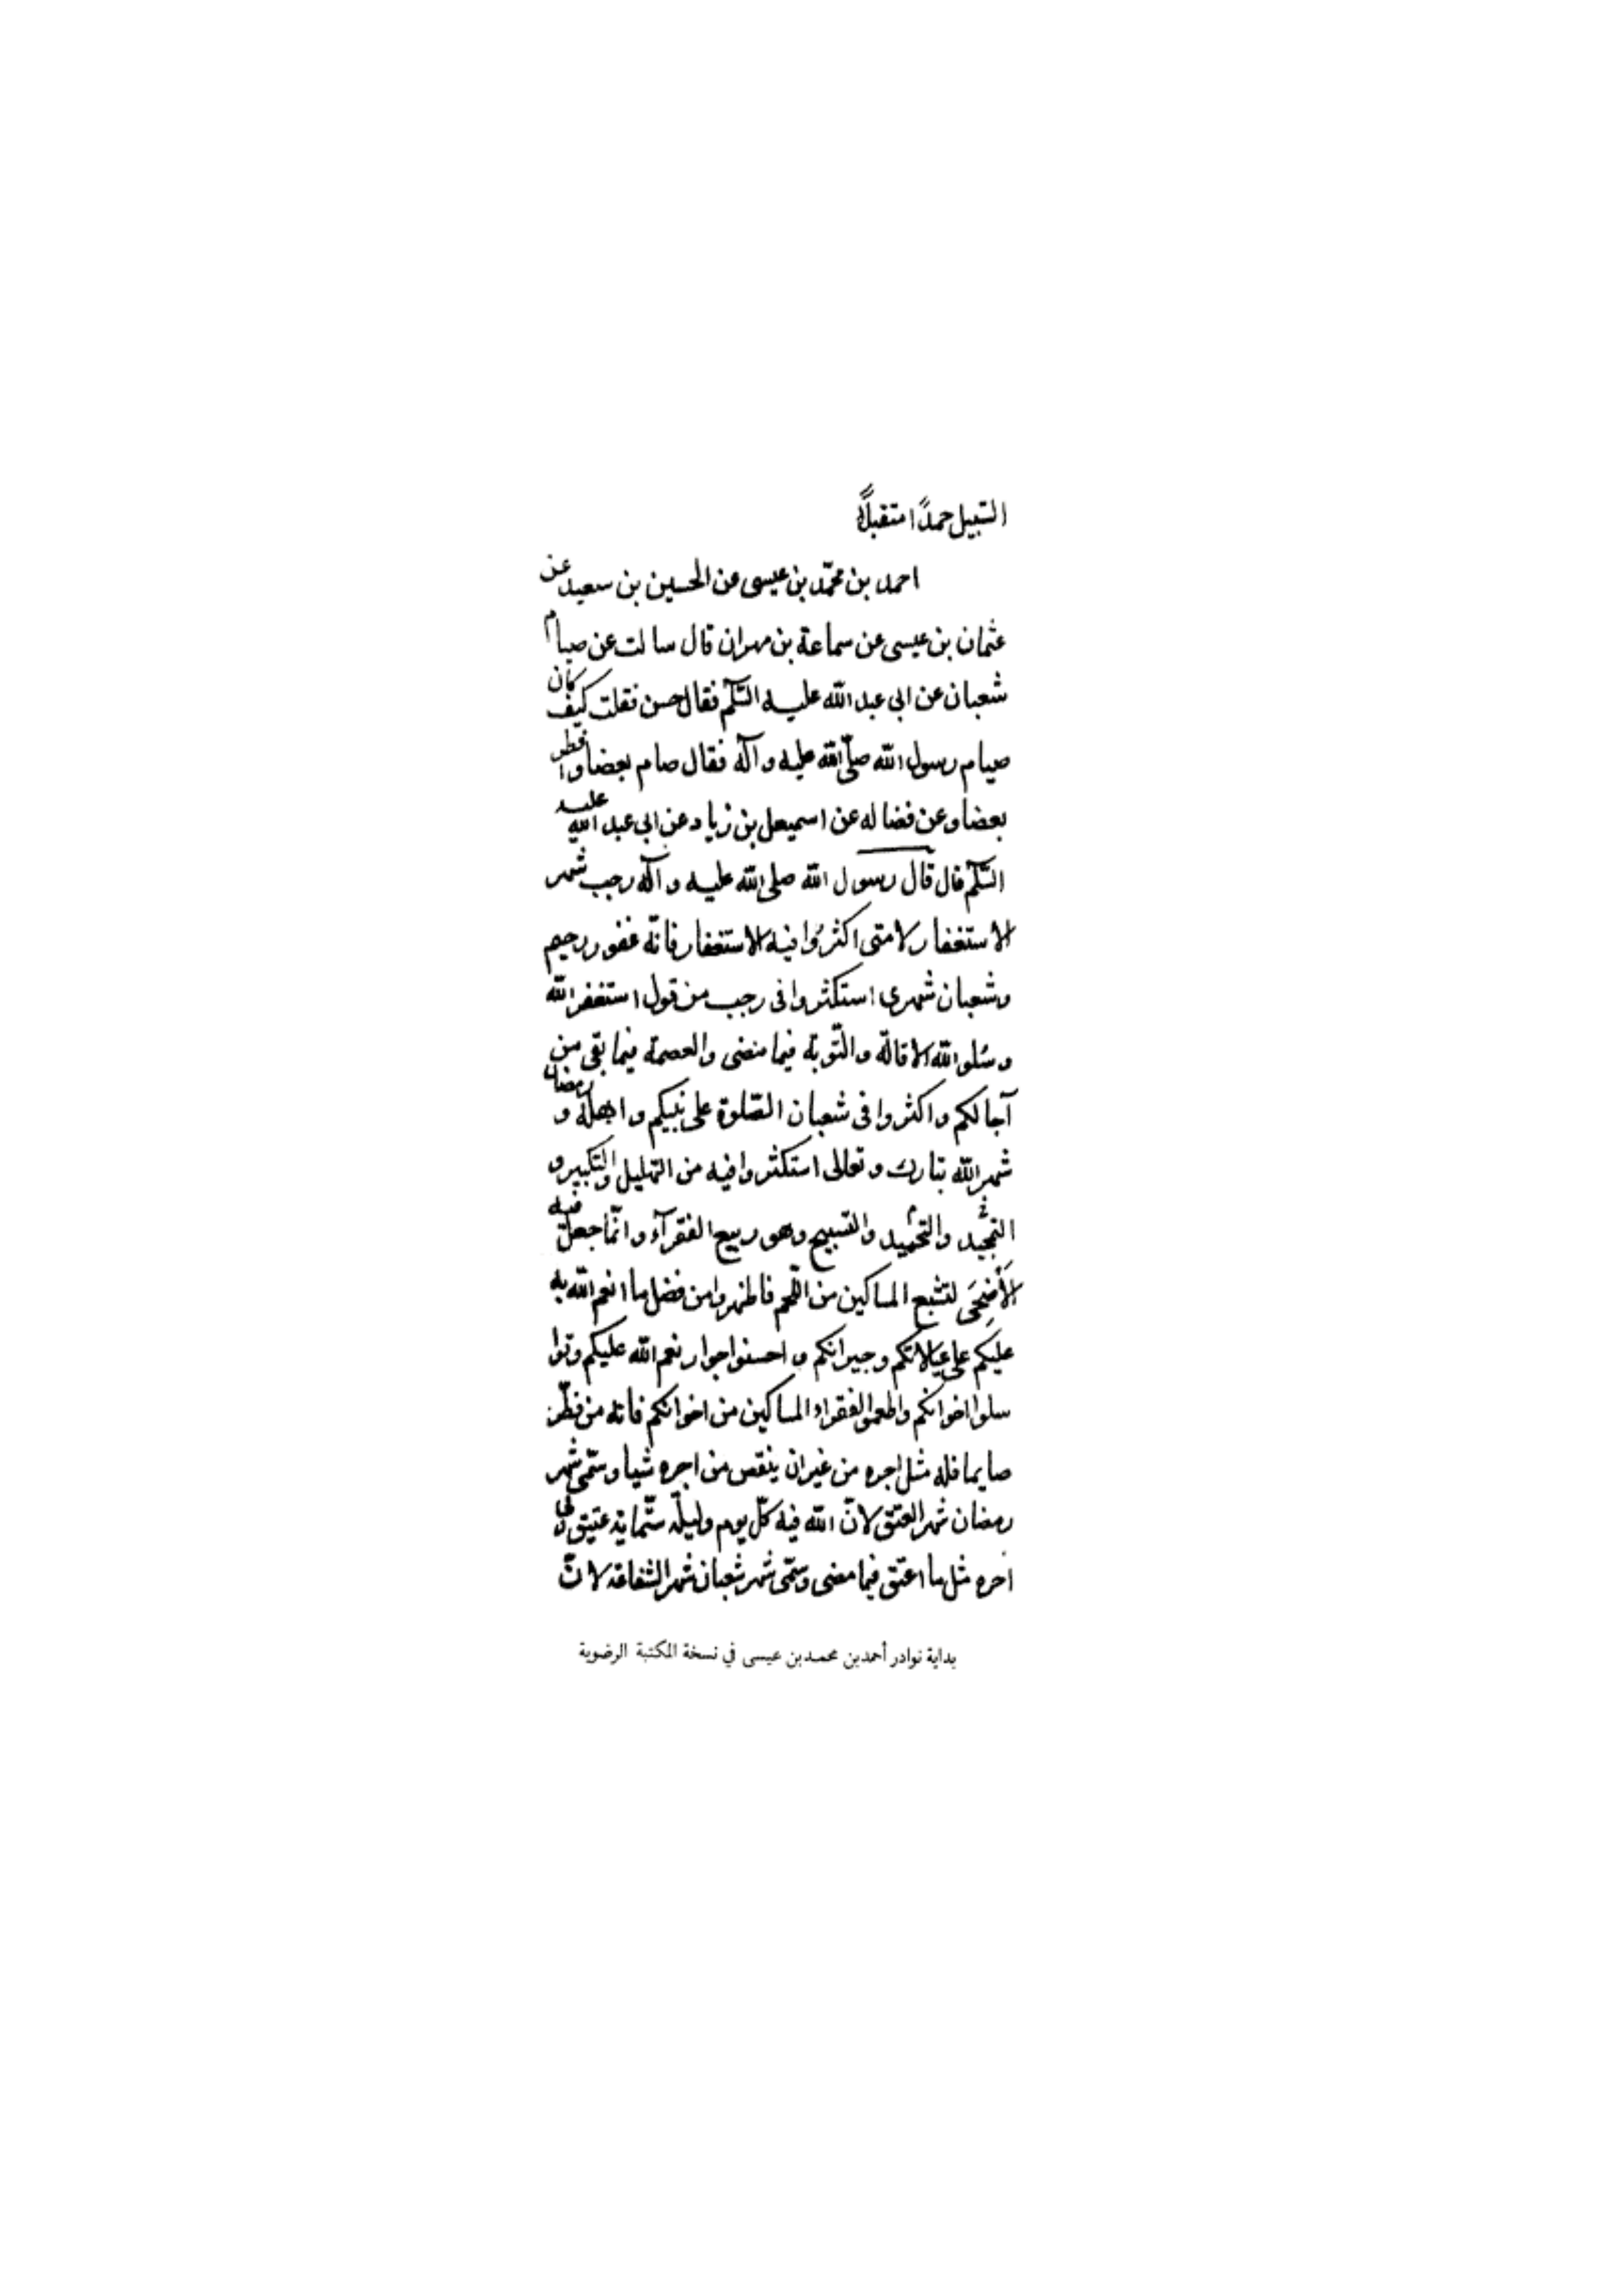 السبيل حمدًا متقبلًا
احمد بن محمّد بن عيسى عن الحسين بن سعيد عن
عثمان بن عيسى عن سماعة بن مهران قال سالت عن صيام
شعبان عن ابى عبد الله عليه السّلم فقال حسن فقلت كيف كان
صيام رسول الله صلّى الله عليه وآله فقال صام بعضا وافطر
بعضا وعن فضاله عن اسمعيل بن زياد عن ابى عبد الله عليه
السّلم قال قال رسول الله صلى الله عليه وآله رجب شهر
الاستغفار لامتى اكثرُوا فيه الاستغفار فانّه غفور رحيم
وشعبان شهرى استكثروا فى رجب من قول استغفر الله
وسلوا الله الاقالة والتّوبة فيما مضى والعصمة فيما بقى من
آجالكم واكثروا فى شعبان الصّلوة على نبيكم واهله و رمضان
شهر الله تبارك وتعالى استكثروا فيه من التهليل والتكبير و
التمجيد والتحميد والتسبيح وهو ربيع الفقرآء وانّما جعل فيه
الأَضحَى لتشبع المساكين من اللّحم فاظهروا من فضل ما انعم الله به
عليكم على عيالاتكم وجيرانكم واحسنوا جوار نعم الله عليكم وتوا
سلوا اخوانكم واطعموا الفقراء المساكين من اخوانكم فانه من فطّر
صايما فله مثل اجره من غير ان ينقص من اجره شيا وسمّى شهر
رمضان شهر العتق لانّ الله فيه كلّ يوم وليلة ستّماية عتيق وفى
اخره مثل ما اعتق فيما مضى وسمّى شهر شعبان شهر الشفاعة لانّ
بداية نوادر أحمد بن محمد بن عيسى في نسخة المكتبة الرضوية